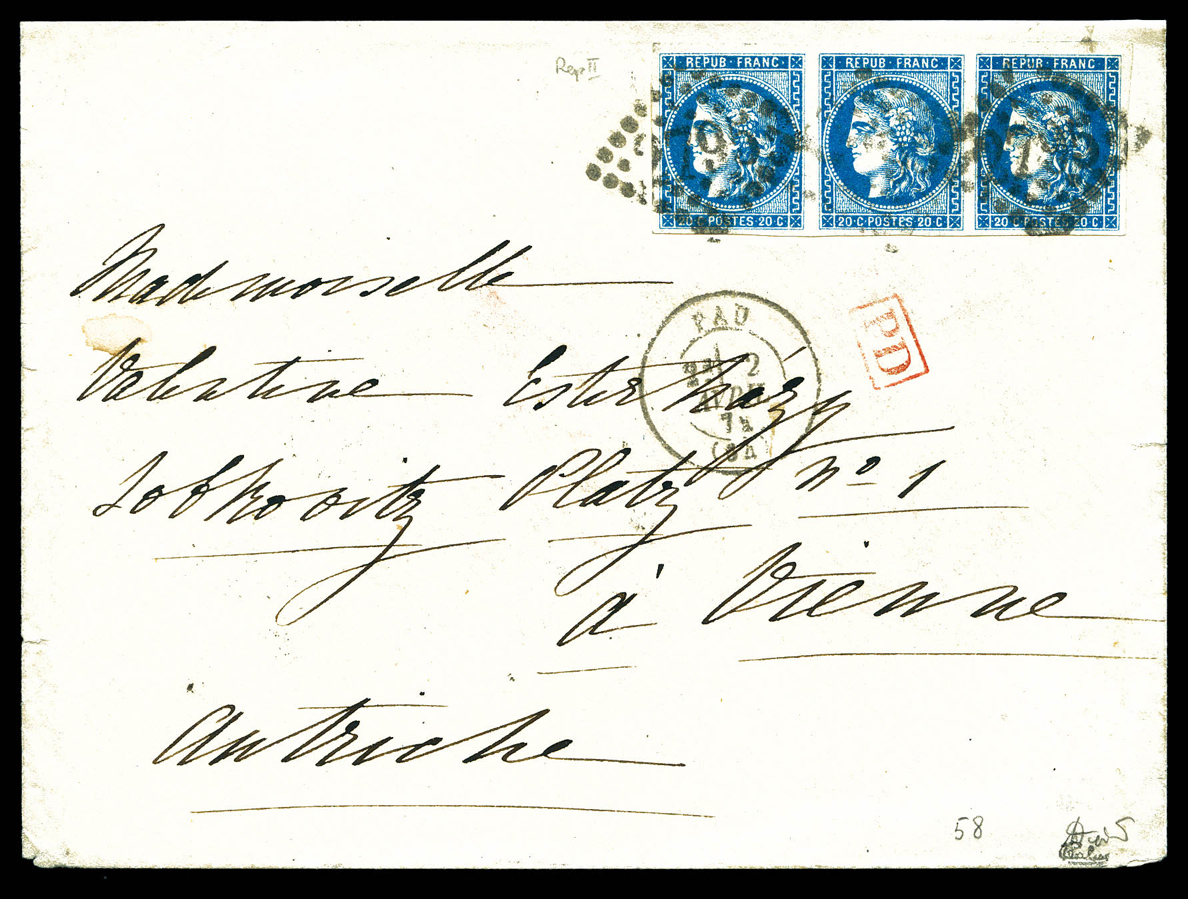 Rep II
REPUB·FRANC· REPUB·FRANC· REPUB·FRANC·
20·C·POSTES·20·C 20·C·POSTES·20·C 20·C·POSTES·20·C
Mademoiselle
PAU
2
AVRIL
71
PD
Valentine Esterházy
Lobkowitz Platz nº 1
à Vienne
Autriche
58